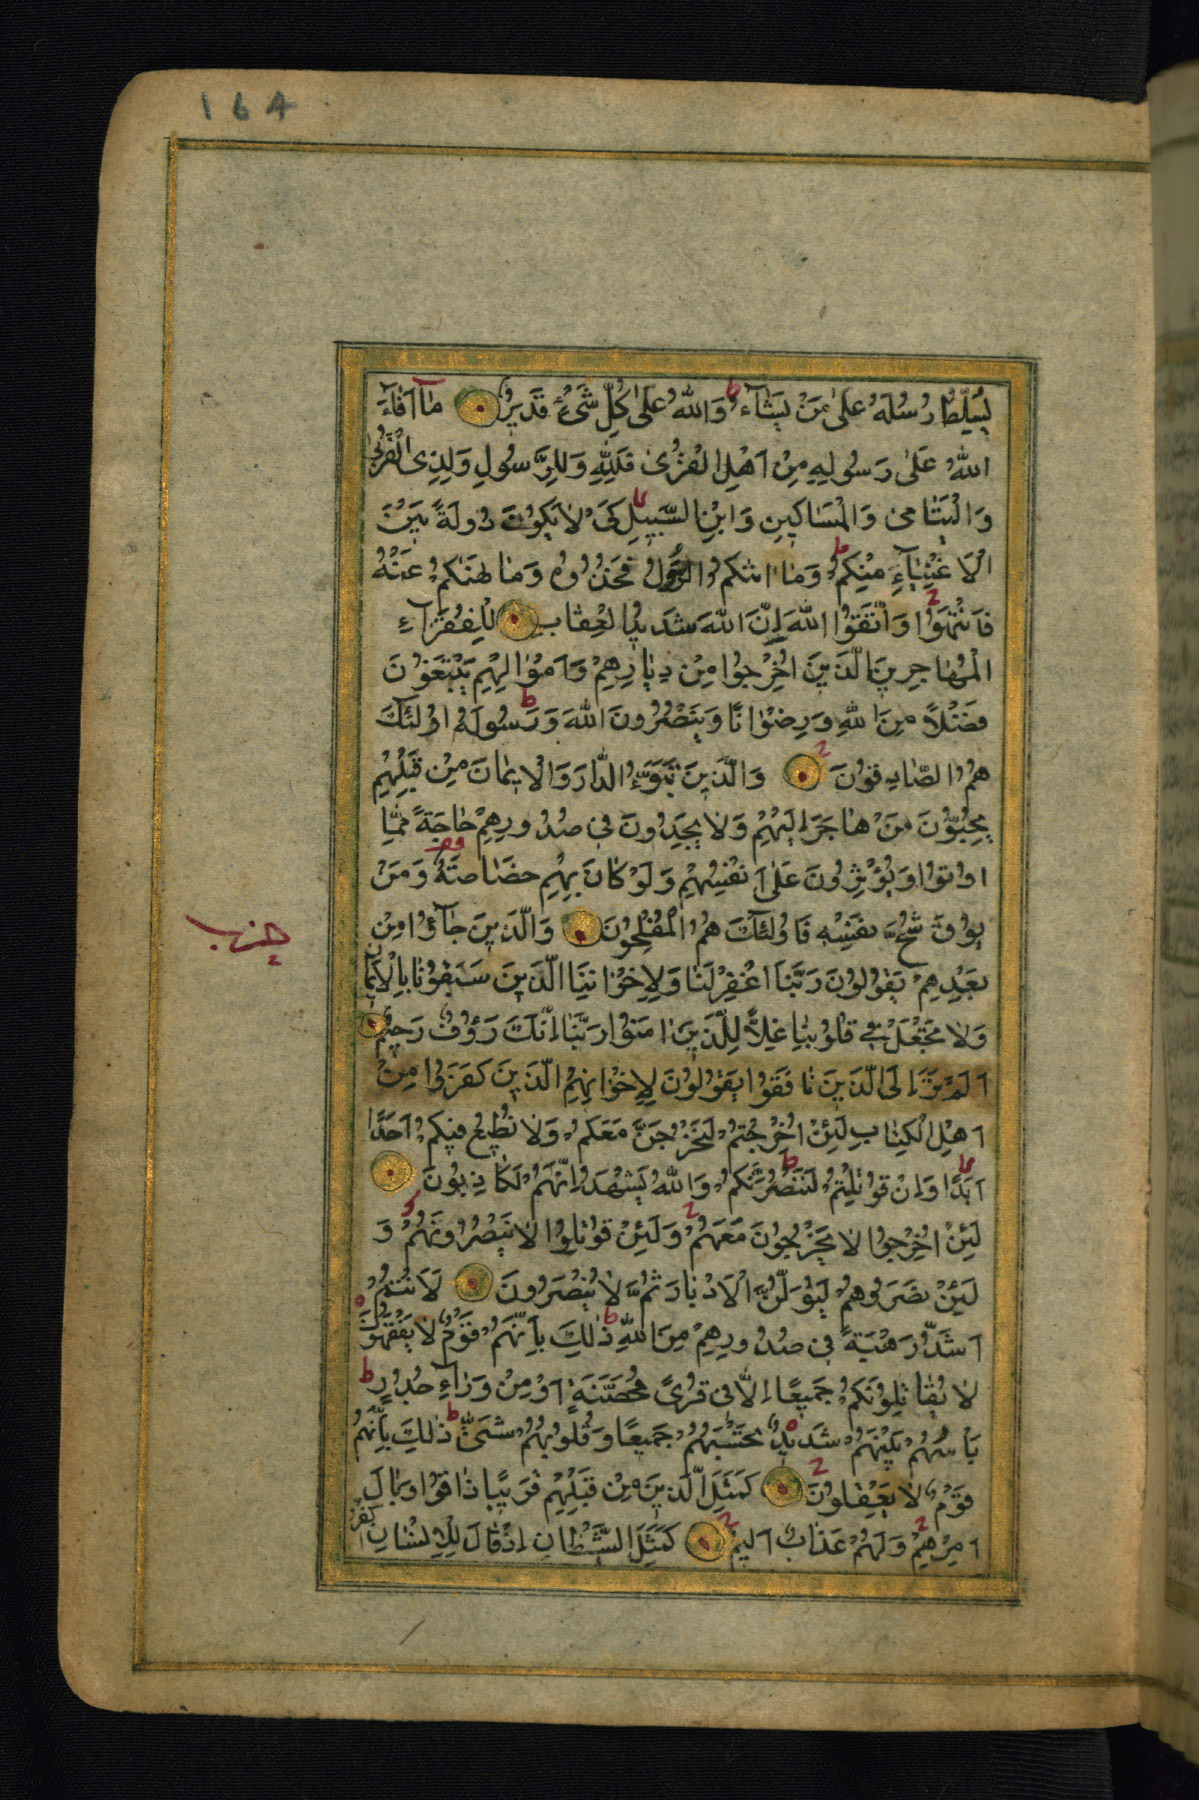 164
يُسَلِّطُ رُسُلَهُ عَلٰى مَنْ يَشَآءُ ط وَاللّٰهُ عَلٰى كُلِّ شَىْءٍ قَدِيرٌ مَٓا اَفَآءَ
اللّٰهُ عَلٰى رَسُولِهِ مِنْ اَهْلِ الْقُرٰى فَلِلّٰهِ وَلِلرَّسُولِ وَلِذِى الْقُرْبٰى
وَالْيَتَامٰى وَالْمَسَاكِينِ وَابْنِ السَّبِيلِ لا كَىْ لَا يَكُونَ دُولَةً بَيْنَ
الْاَغْنِيَآءِ مِنْكُمْ ط وَمَا اٰتٰكُمُ الرَّسُولُ فَخُذُوهُ وَمَا نَهٰيكُمْ عَنْهُ
فَانْتَهُوا ج وَاتَّقُوا اللّٰهَ اِنَّ اللّٰهَ شَدِيدُ الْعِقَابِ لِلْفُقَرَآءِ
الْمُهَاجِرِينَ الَّذِينَ اُخْرِجُوا مِنْ دِيَارِهِمْ وَاَمْوَالِهِمْ يَبْتَغُونَ
فَضْلًا مِنَ اللّٰهِ وَرِضْوَانًا وَيَنْصُرُونَ اللّٰهَ وَرَسُولَهُ ط اُولٰٓئِكَ
هُمُ الصَّادِقُونَ ج وَالَّذِينَ تَبَوَّءُ الدَّارَ وَالْاِيمَانَ مِنْ قَبْلِهِمْ
يُحِبُّونَ مَنْ هَاجَرَ اِلَيْهِمْ وَلَا يَجِدُونَ فِى صُدُورِهِمْ حَاجَةً مِمَّا
اُوتُوا وَيُؤْثِرُونَ عَلٰى اَنْفُسِهِمْ وَلَوْ كَانَ بِهِمْ خَصَاصَةٌ وَمَنْ
يُوقَ شُحَّ نَفْسِهِ فَاُولٰٓئِكَ هُمُ الْمُفْلِحُونَ وَالَّذِينَ جَآؤُا مِنْ
حزب
بَعْدِهِمْ يَقُولُونَ رَبَّنَا اغْفِرْ لَنَا وَلِاِخْوَانِنَا الَّذِينَ سَبَقُونَا بِالْاِيمَانِ
وَلَا تَجْعَلْ فِى قُلُوبِنَا غِلًّا لِلَّذِينَ اٰمَنُوا رَبَّنَا اِنَّكَ رَؤُفٌ رَحِيمٌ
اَلَمْ تَرَ اِلَى الَّذِينَ نَافَقُوا يَقُولُونَ لِاِخْوَانِهِمُ الَّذِينَ كَفَرُوا مِنْ
اَهْلِ الْكِتَابِ لَئِنْ اُخْرِجْتُمْ لَنَخْرُجَنَّ مَعَكُمْ وَلَا نُطِيعُ فِيكُمْ اَحَدًا
اَبَدًا لا وَاِنْ قُوتِلْتُمْ لَنَنْصُرَنَّكُمْ ط وَاللّٰهُ يَشْهَدُ اِنَّهُمْ لَكَاذِبُونَ
لَئِنْ اُخْرِجُوا لَا يَخْرُجُونَ مَعَهُمْ ج وَلَئِنْ قُوتِلُوا لَا يَنْصُرُونَهُمْ وَ
لَئِنْ نَصَرُوهُمْ لَيُوَلُّنَّ الْاَدْبَارَ ثُمَّ لَا يُنْصَرُونَ لَاَنْتُمْ
اَشَدُّ رَهْبَةً فِى صُدُورِهِمْ مِنَ اللّٰهِ ط ذٰلِكَ بِاَنَّهُمْ قَوْمٌ لَا يَفْقَهُونَ
لَا يُقَاتِلُونَكُمْ جَمِيعًا اِلَّا فِى قُرًى مُحَصَّنَةٍ اَوْ مِنْ وَرَآءِ جُدُرٍ ط
بَاْسُهُمْ بَيْنَهُمْ شَدِيدٌ تَحْسَبُهُمْ جَمِيعًا وَقُلُوبُهُمْ شَتّٰى ط ذٰلِكَ بِاَنَّهُمْ
قَوْمٌ لَا يَعْقِلُونَ ج كَمَثَلِ الَّذِينَ مِنْ قَبْلِهِمْ قَرِيبًا ذَاقُوا وَبَالَ
اَمْرِهِمْ ج وَلَهُمْ عَذَابٌ اَلِيمٌ ج كَمَثَلِ الشَّيْطَانِ اِذْ قَالَ لِلْاِنْسَانِ اكْفُرْ